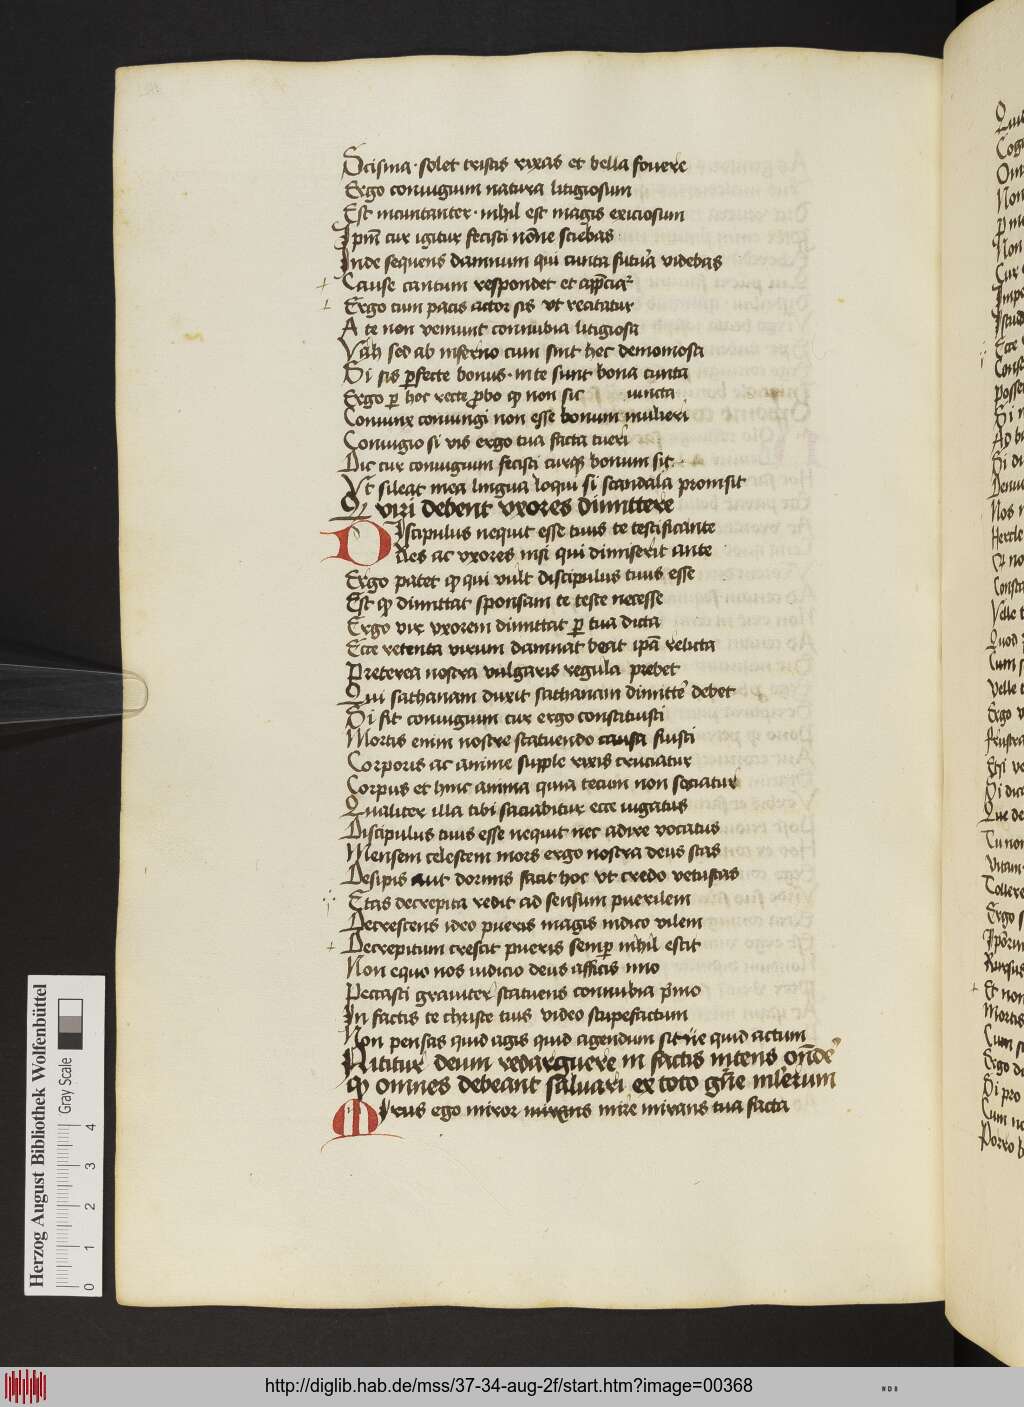 Scisma · solet tristis rixas et bella fovere
Ergo coniugium natura litigiosum
Est incuntanter · nihil est magis exiciosum
Ipm̄ cur igitur fecisti nōne sciebas
Inde sequens damnum qui cuncta futura videbas
Cause tantum respondet et
Ergo cum pacis actor sis vt recitatur
A te non veniunt connubia litigiosa
Vah sed ab inferno cum sint hec demoniosa
Si sis p̄fecte bonus · in te sunt bona cuncta
Ergo p̄ hoc recte p̄bo ꝙ non sic iuncta
Coniunx coniungi non esse bonum mulieri
Coniugio si vis ergo tua facta tueri
Dic cur coniugium fecisti curꝗ bonum sit
Vt sileat mea lingua loqui si scandala promsit
Q viri debent vxores dimittere
Discipulus nequit esse tuus te testificante
Aes ac vxores nisi qui dimiserit ante
Ergo patet ꝙ qui vult discipulus tuus esse
Est ꝙ dimittat sponsam te teste necesse
Ergo vir vxorem dimittat p̄ tua dicta
Ecce retenta virum damnat beat ip̄a relicta
Preterea nostra vulgaris regula prebet
Qui sathanam duxit sathanam dimittē debet
Si sit coniugium cur ergo constituisti
Mortis enim nostre statuendo causa fuisti
Corporis ac anime supple rixis cruciatur
Corpus et hinc anima quia tecum non sociatur
Qualiter illa tibi saciabitur ecce iugatus
Discipulus tuus esse nequit nec adire vocatus
Mensem celestem mors ergo nostra deus stas
Desipis aut dormis facit hoc vt credo vetustas
Etas decrepita redit ad sensum puerilem
Decrescens ideo pueris magis iudico vilem
Decrepitum crescit pueris semp̄ nihil escit
Non equo nos iudicio deus afficis imo
Peccasti graviter statuens connubia p̄mo
In factis te christe tuis video stupefactum
Non pensas quid agis quid agendum sit ne quid actum
Nititur deum redarguere in factis nitens on̄dē
ꝙ omnes debeant salvari ex toto gn̄e mlerum
Mirus ego miror mirans mire mirans tua facta
Herzog August Bibliothek Wolfenbüttel
Gray Scale
0 1 2 3 4
http://diglib.hab.de/mss/37-34-aug-2f/start.htm?image=00368